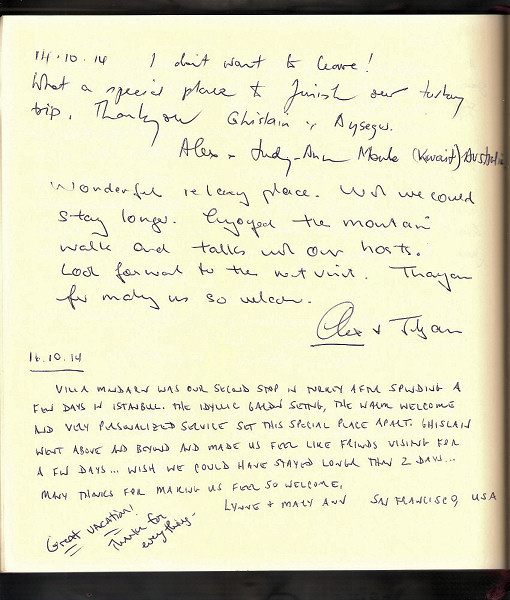 14.10.14 I don't want to leave!
What a special place to finish our turkey
trip. Thankyou Ghislain & Aysegu.
Alex & Judy-Ann (Kuwait) Australia
Wonderful relaxing place. Wish we could
stay longer. Enjoyed the mountain
walk and talks with our hosts.
Look forward to the next visit. Thankyou
for making us so welcome.
Alex &
16.10.14
VILLA MANDARIN WAS OUR SECOND STOP IN TURKEY AFTER SPENDING A
FEW DAYS IN ISTANBUL. THE IDYLLIC GARDEN SETTING, THE WARM WELCOME
AND VERY PERSONALIZED SERVICE SET THIS SPECIAL PLACE APART. GHISLAIN
WENT ABOVE AND BEYOND AND MADE US FEEL LIKE FRIENDS VISITING FOR
A FEW DAYS... WISH WE COULD HAVE STAYED LONGER THAN 2 DAYS...
MANY THANKS FOR MAKING US FEEL SO WELCOME,
LYNNE + MARY ANN SAN FRANCISCO, USA
Great vacation!
Thanks for
everything-